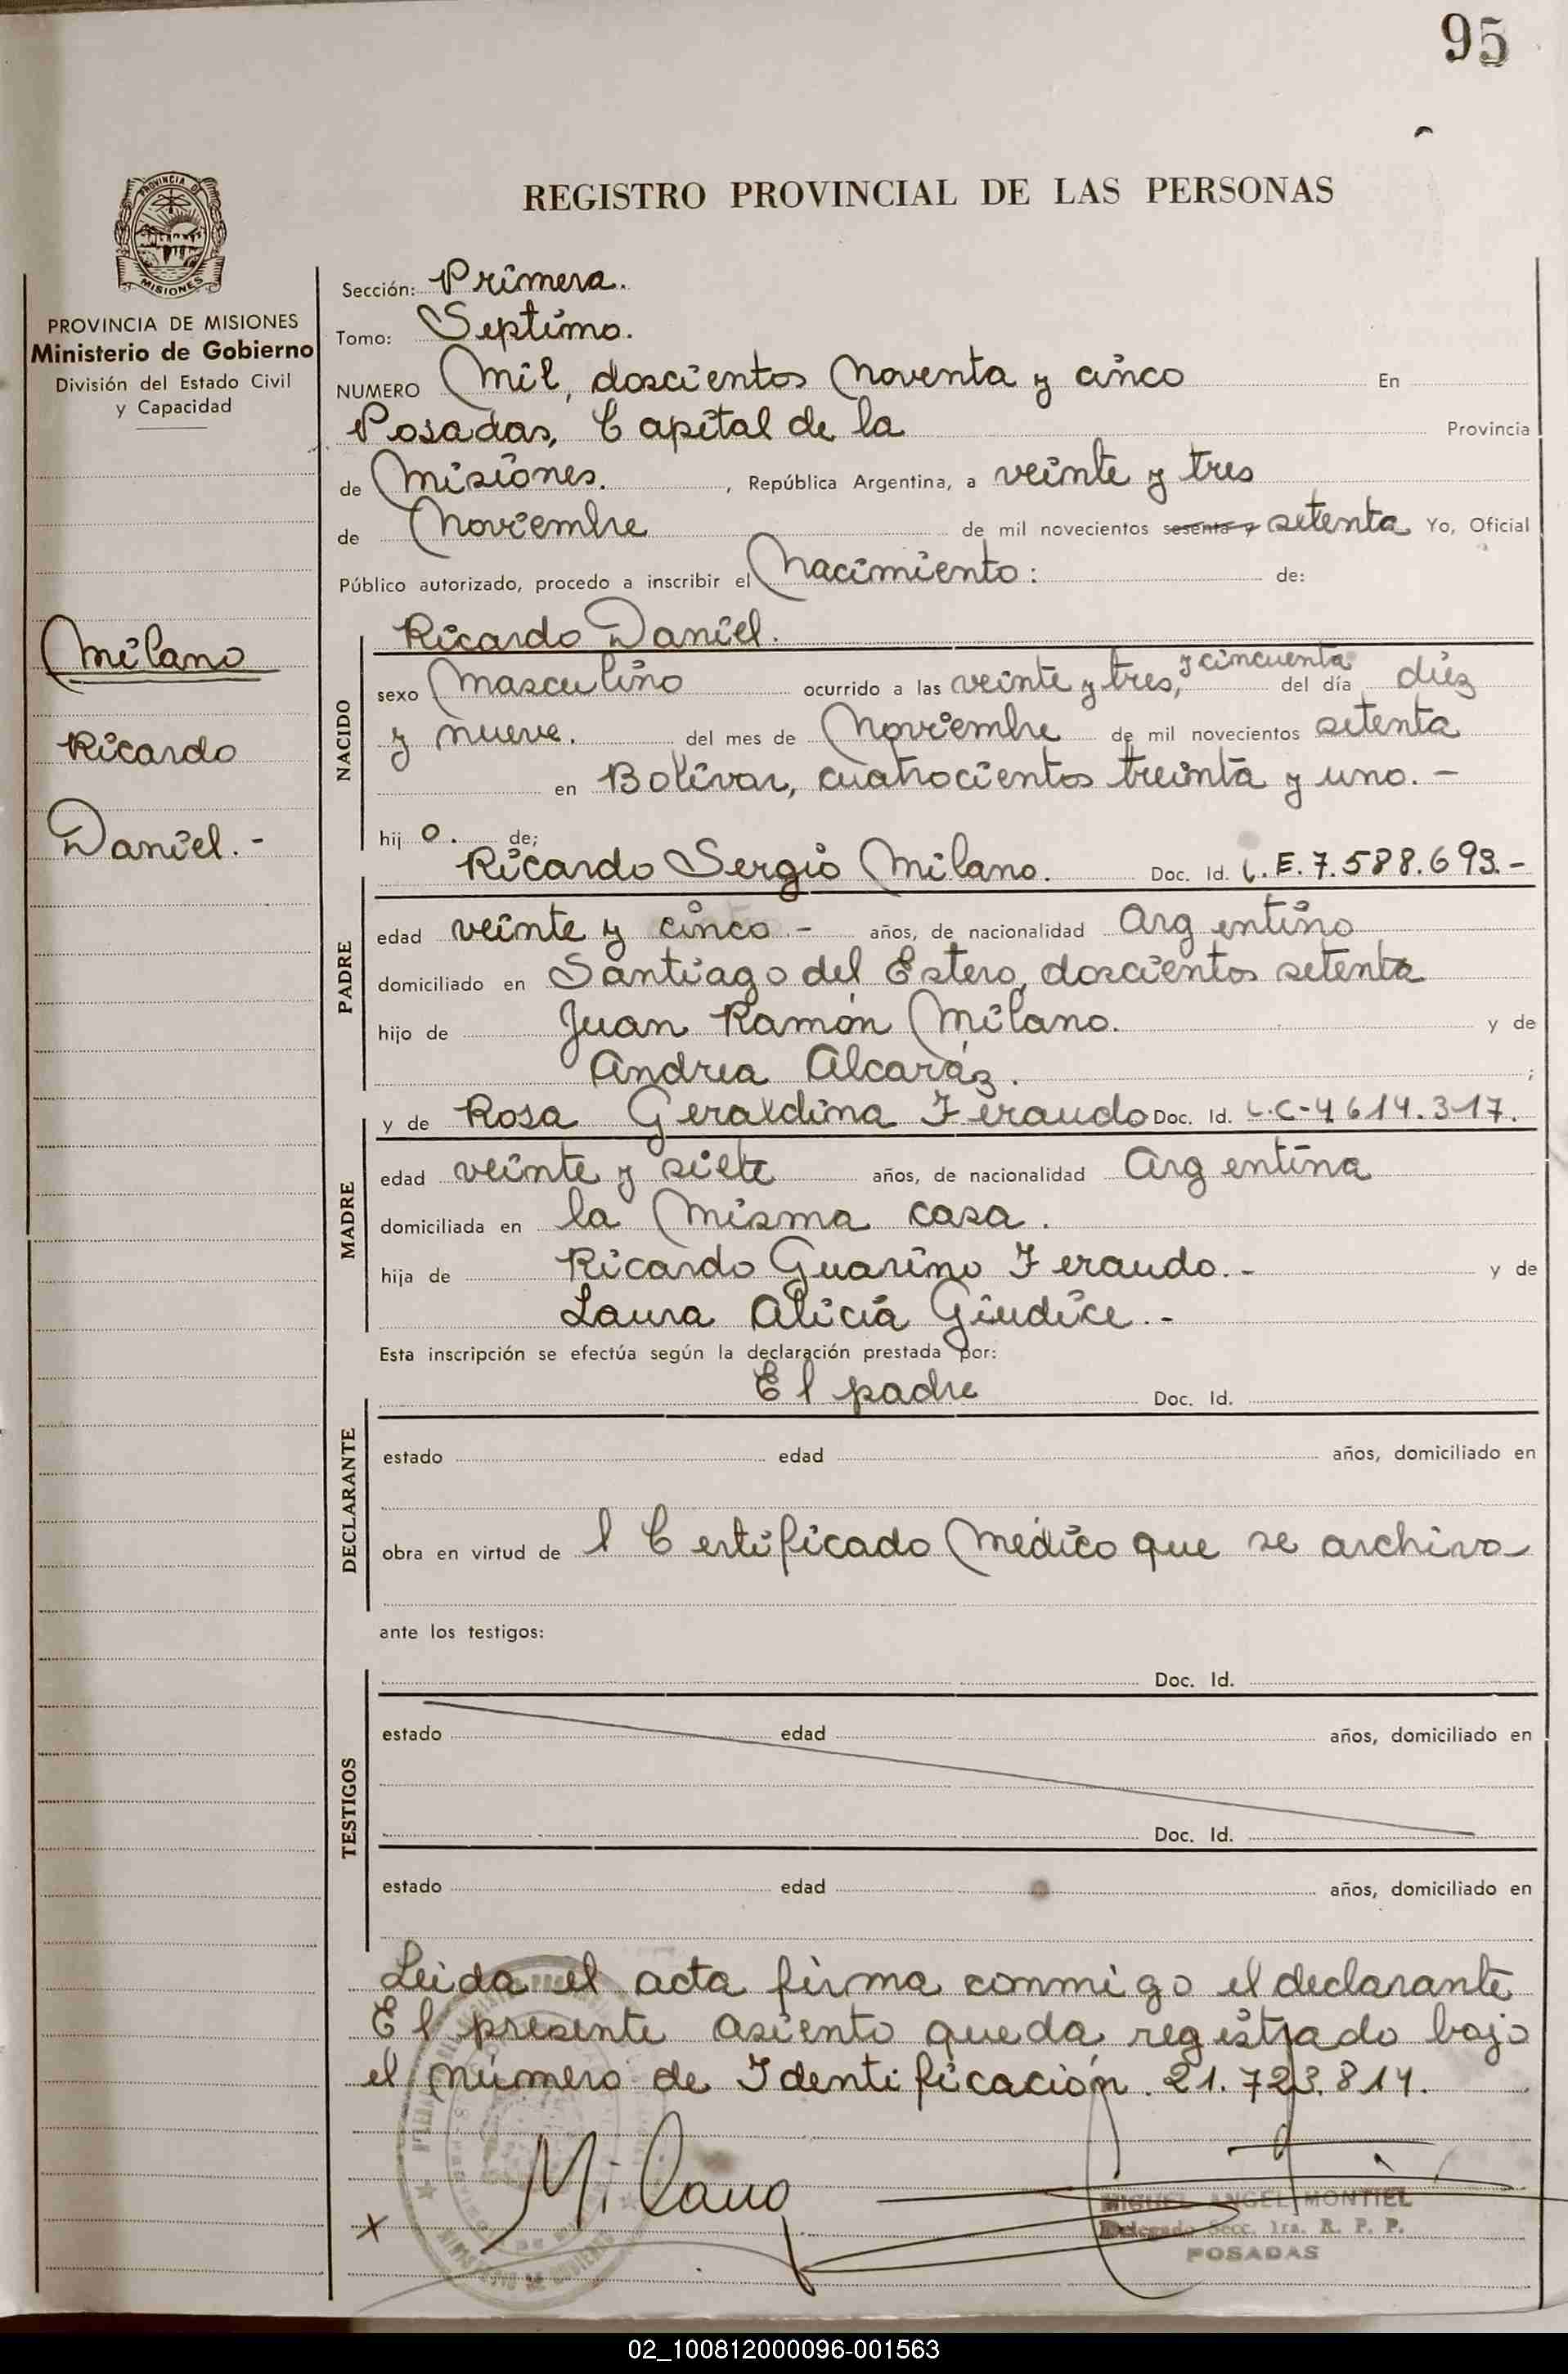 95
REGISTRO PROVINCIAL DE LAS PERSONAS
PROVINCIA DE
MISIONES
PROVINCIA DE MISIONES
Ministerio de Gobierno
División del Estado Civil
y Capacidad
Milano
Ricardo
Daniel.-
Sección: Primera.
Tomo: Septimo.
NUMERO Mil, doscientos Noventa y cinco En
Posadas, Capital de la Provincia
de Misiones. , República Argentina, a veinte y tres
de Noviembre de mil novecientos sesenta y setenta Yo, Oficial
Público autorizado, procedo a inscribir el Nacimiento: de:
Ricardo Daniel.
NACIDO
sexo Masculino ocurrido a las veinte y tres, y cincuenta del día diéz
y nueve. del mes de Noviembre de mil novecientos setenta
en Bolívar, cuatrocientos treinta y uno.-
hij o. de;
Ricardo Sergio Milano. Doc. Id. L.E.7.588.693.-
PADRE
edad veinte y cinco.- años, de nacionalidad Argentino
domiciliado en Santiago del Estero, doscientos setenta
hijo de Juan Ramón Milano. y de
Andrea Alcaráz. ;
y de Rosa Geraldina Feraudo Doc. Id. L.C-4614.317.
MADRE
edad veinte y siete años, de nacionalidad Argentina
domiciliada en la misma casa.
hija de Ricardo Guarino Feraudo.- y de
Laura Alicia Giudice.-
Esta inscripción se efectúa según la declaración prestada por:
El padre Doc. Id.
DECLARANTE
estado edad años, domiciliado en
obra en virtud de l Certificado Médico que se archiva
ante los testigos:
Doc. Id.
TESTIGOS
estado edad años, domiciliado en
Doc. Id.
estado edad años, domiciliado en
Leida el acta firma conmigo el declarante
El presente asiento queda registrado bajo
el número de Identificación. 21.723.814.
Milano
x
MIGUEL ANGEL MONTIEL
Delegado Secc. 1ra. R. P. P.
POSADAS
02_100812000096-001563